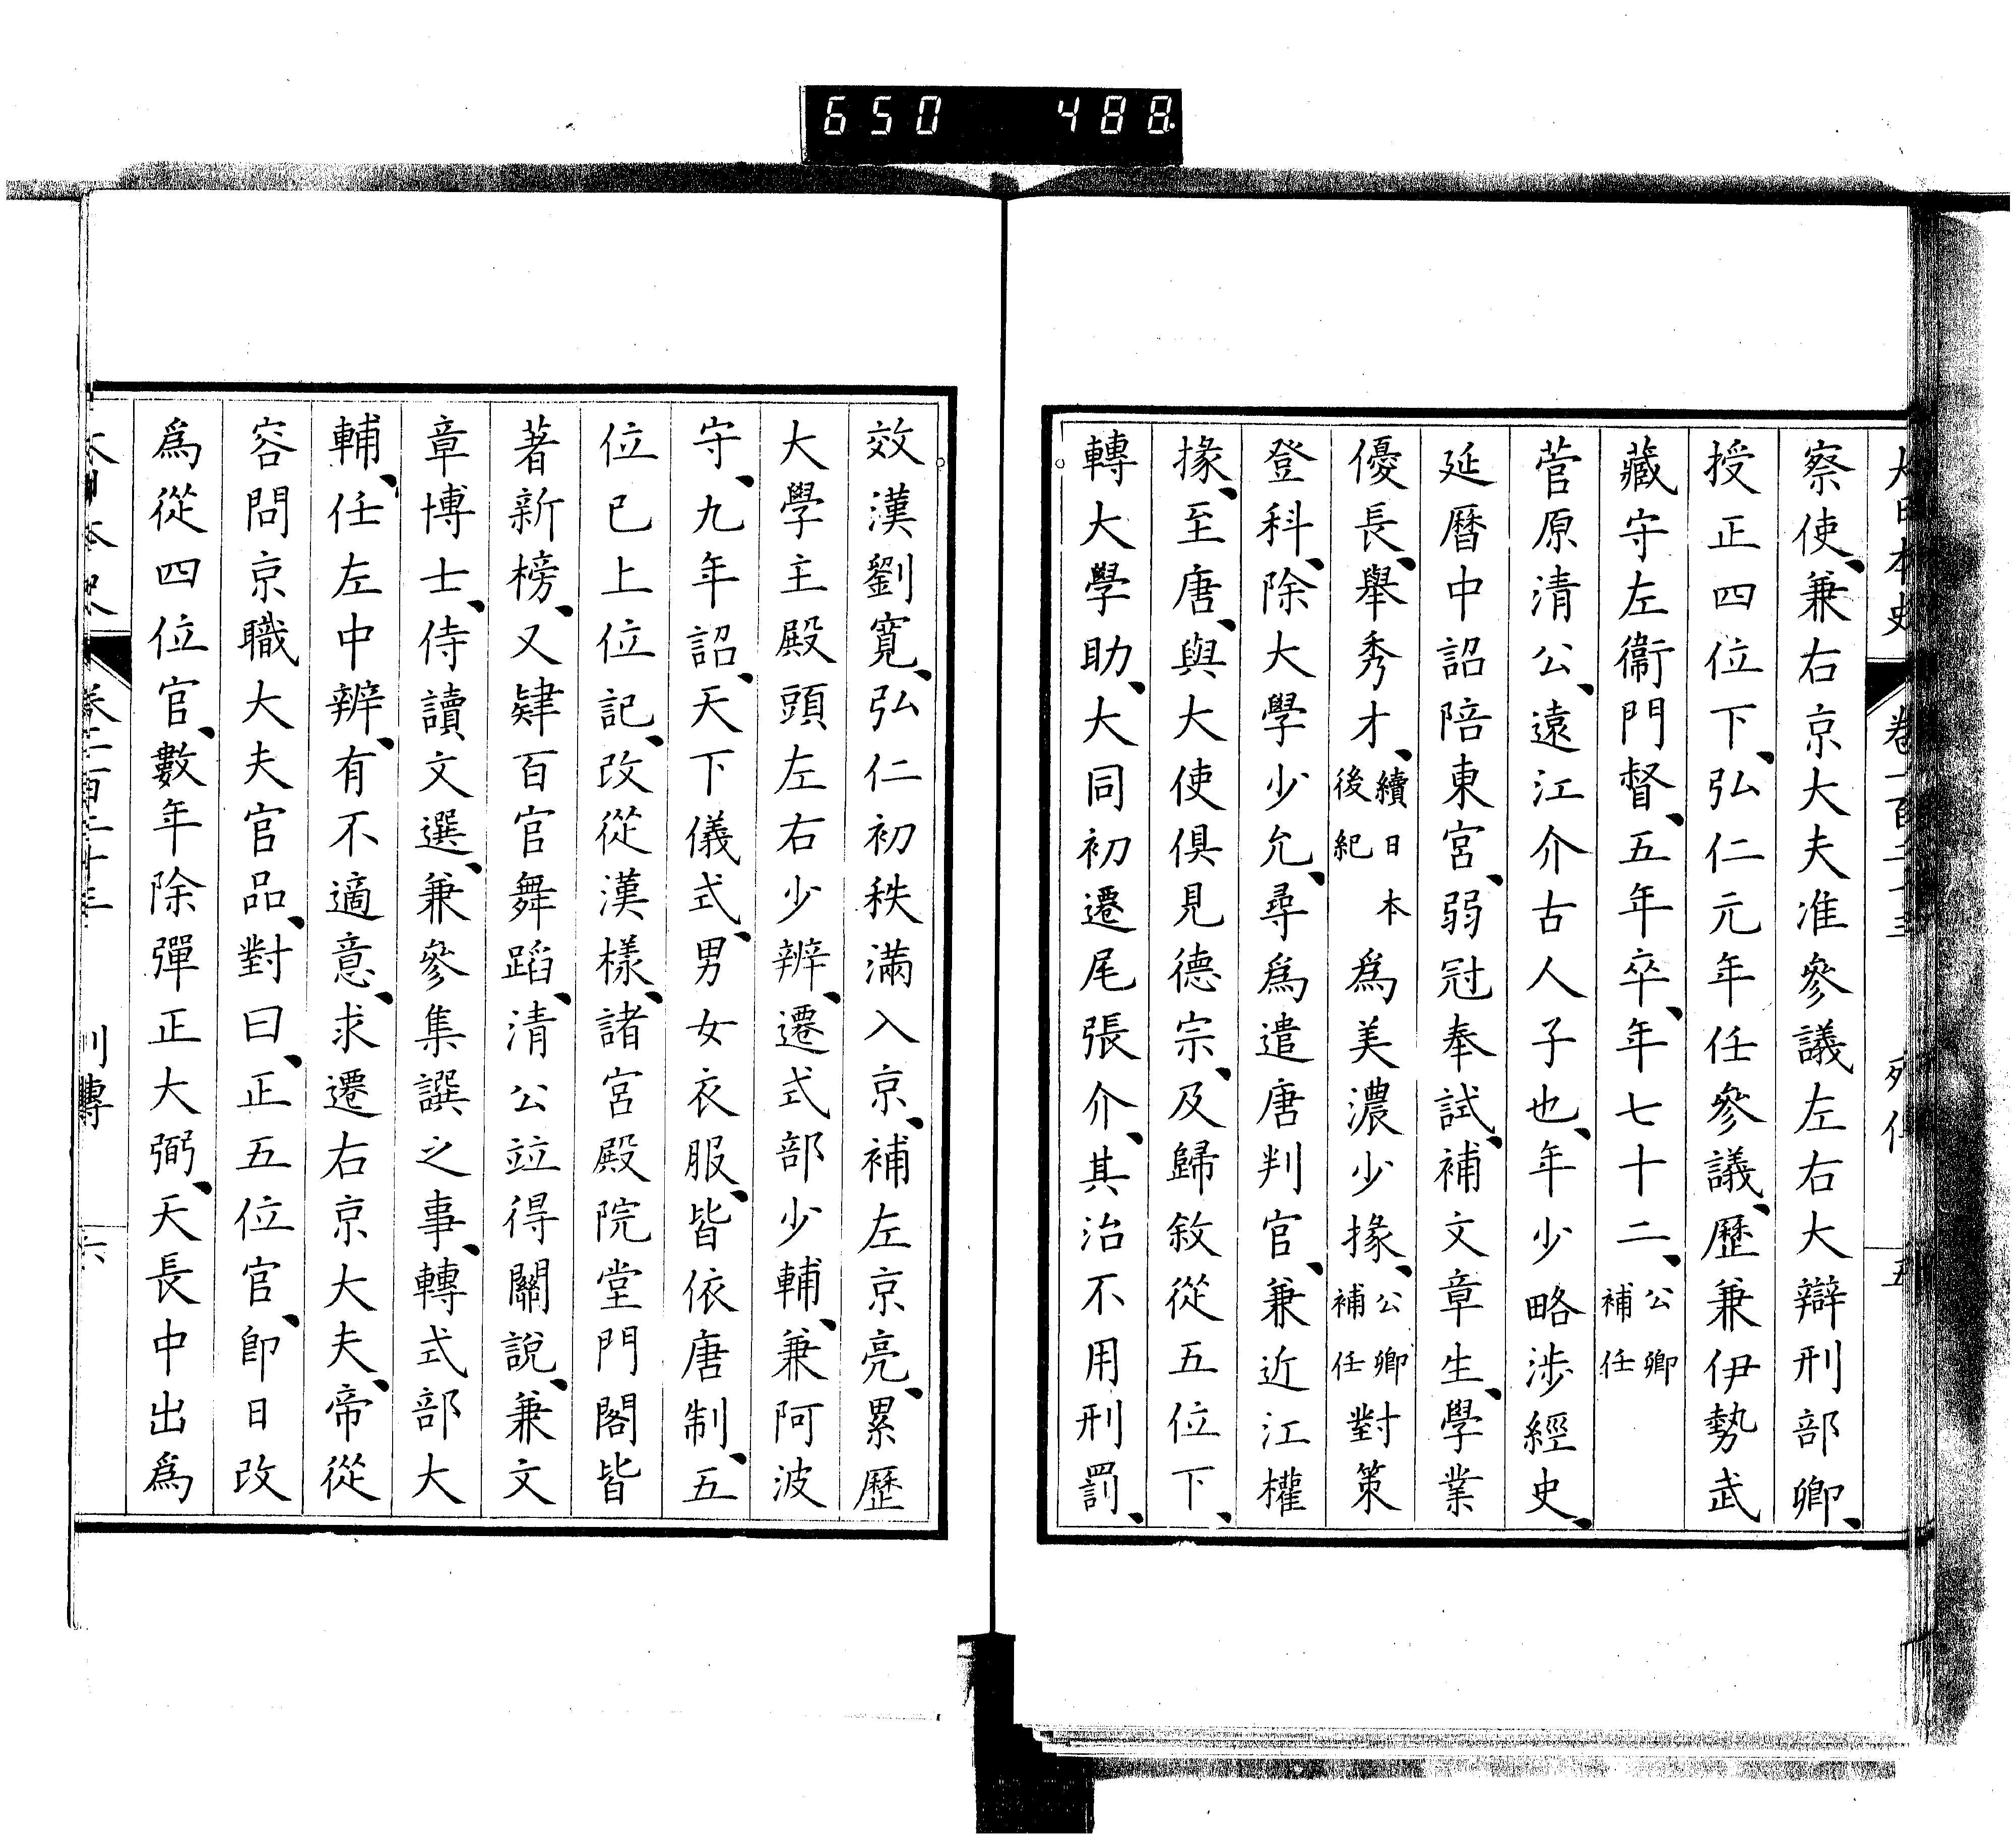 650 488
大日本史 卷一百二十三 列傳 五
察使、兼右京大夫准參議左右大辯刑部卿、
授正四位下、弘仁元年任參議、歷兼伊勢武
藏守左衞門督、五年卒、年七十二、公卿補任
菅原清公、遠江介古人子也、年少略涉經史、
延曆中詔陪東宮、弱冠奉試、補文章生、學業
優長、舉秀才、續日本後紀爲美濃少掾、公卿補任對策
登科、除大學少允、尋爲遣唐判官、兼近江權
掾、至唐、與大使俱見德宗、及歸敘從五位下、
轉大學助、大同初遷尾張介、其治不用刑罰、
效漢劉寬、弘仁初秩滿入京、補左京亮、累歷
大學主殿頭左右少辨、遷式部少輔、兼阿波
守、九年詔、天下儀式、男女衣服、皆依唐制、五
位已上位記、改從漢樣、諸宮殿院堂門閣皆
著新榜、又肄百官舞蹈、清公竝得關說、兼文
章博士、侍讀文選、兼參集譔之事、轉式部大
輔、任左中辨、有不適意、求遷右京大夫、帝從
容問京職大夫官品、對曰、正五位官、卽日改
爲從四位官、數年除彈正大弼、天長中出爲
大日本史 卷一百二十三 列傳 六